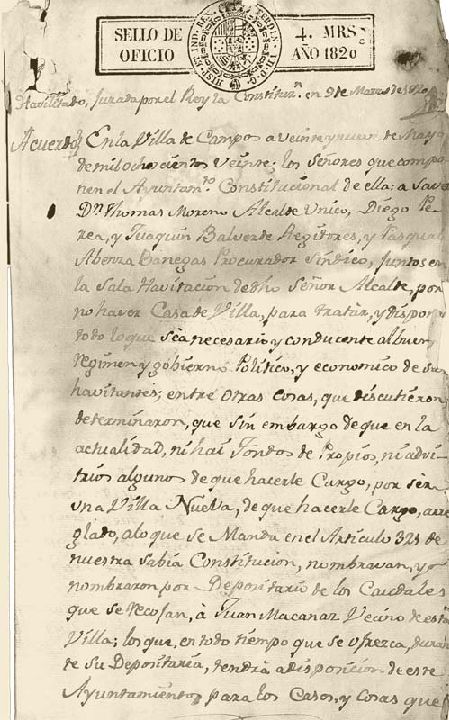 SELLO DE
OFICIO
4. MRS
AÑO 1820
Havilitado, Jurada por el Rey la Constituz.n en 9 de Marzo de 1820
Acuerdo En la Villa de Campos a veinte y nueve de Mayo
de mil ochocientos veinte; los Señores que compo
nen el Ayuntam.to Constitucional de ella; a saver
Dn Thomas Moreno Alcalde Unico, Diego Pe
rea, y Juaquin Balverde Regidores, y Pasqual
Abenza Banegas Procurador Sindico, Juntos en
la Sala Havitacion de dho Señor Alcalde, por
no haver Casa de Villa, para tratar, y disponer
todo lo que sea necesario y conducente al buen
regimen y gobierno Politico, y economico de sus
havitantes; entre otras cosas, que discutieron
determinaron, que sin embargo de que en la
actualidad, ni hai Fondos de Propios, ni advi
trios algunos de que hacerle Cargo, por ser
una Villa Nueva, de que hacerle Cargo, arre
glado, a lo que se Manda en el Articulo 321 de
nuestra Sabia Constitucion, nombravan, y
nombraron por Depositario de los Caudales
que se recojan, à Juan Macanaz Vecino de esta
Villa; los que, en todo tiempo que se ofrezca, duran
te Su Depositaria, tendrà a disposicion de este
Ayuntamiento, para los Casos, y Cosas que